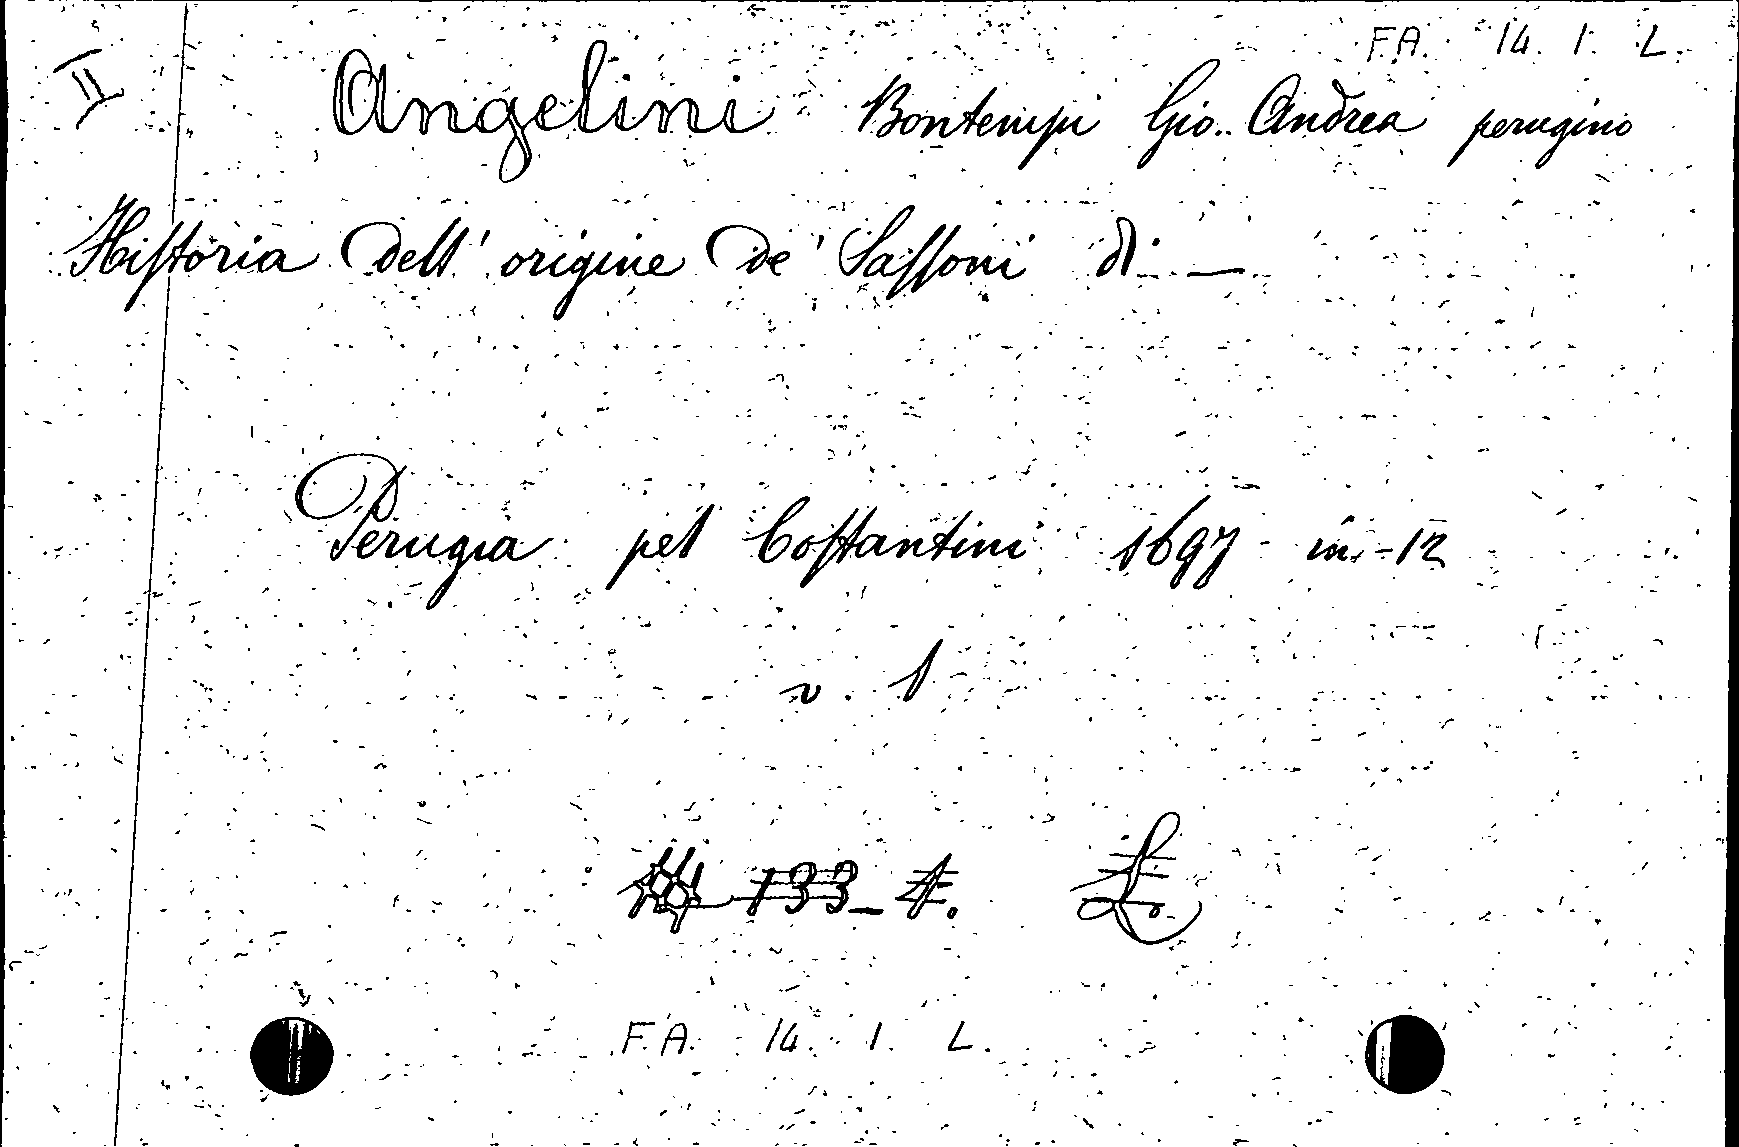 F.A. 14. I. L.
II
Angelini Bontempi Gio. Andrea perugino
Hiſtoria dell' origine de' Saſſoni di —
Perugia pel Coſtantini 1697 in-12
v. 1
133
F.A. 14. I. L.